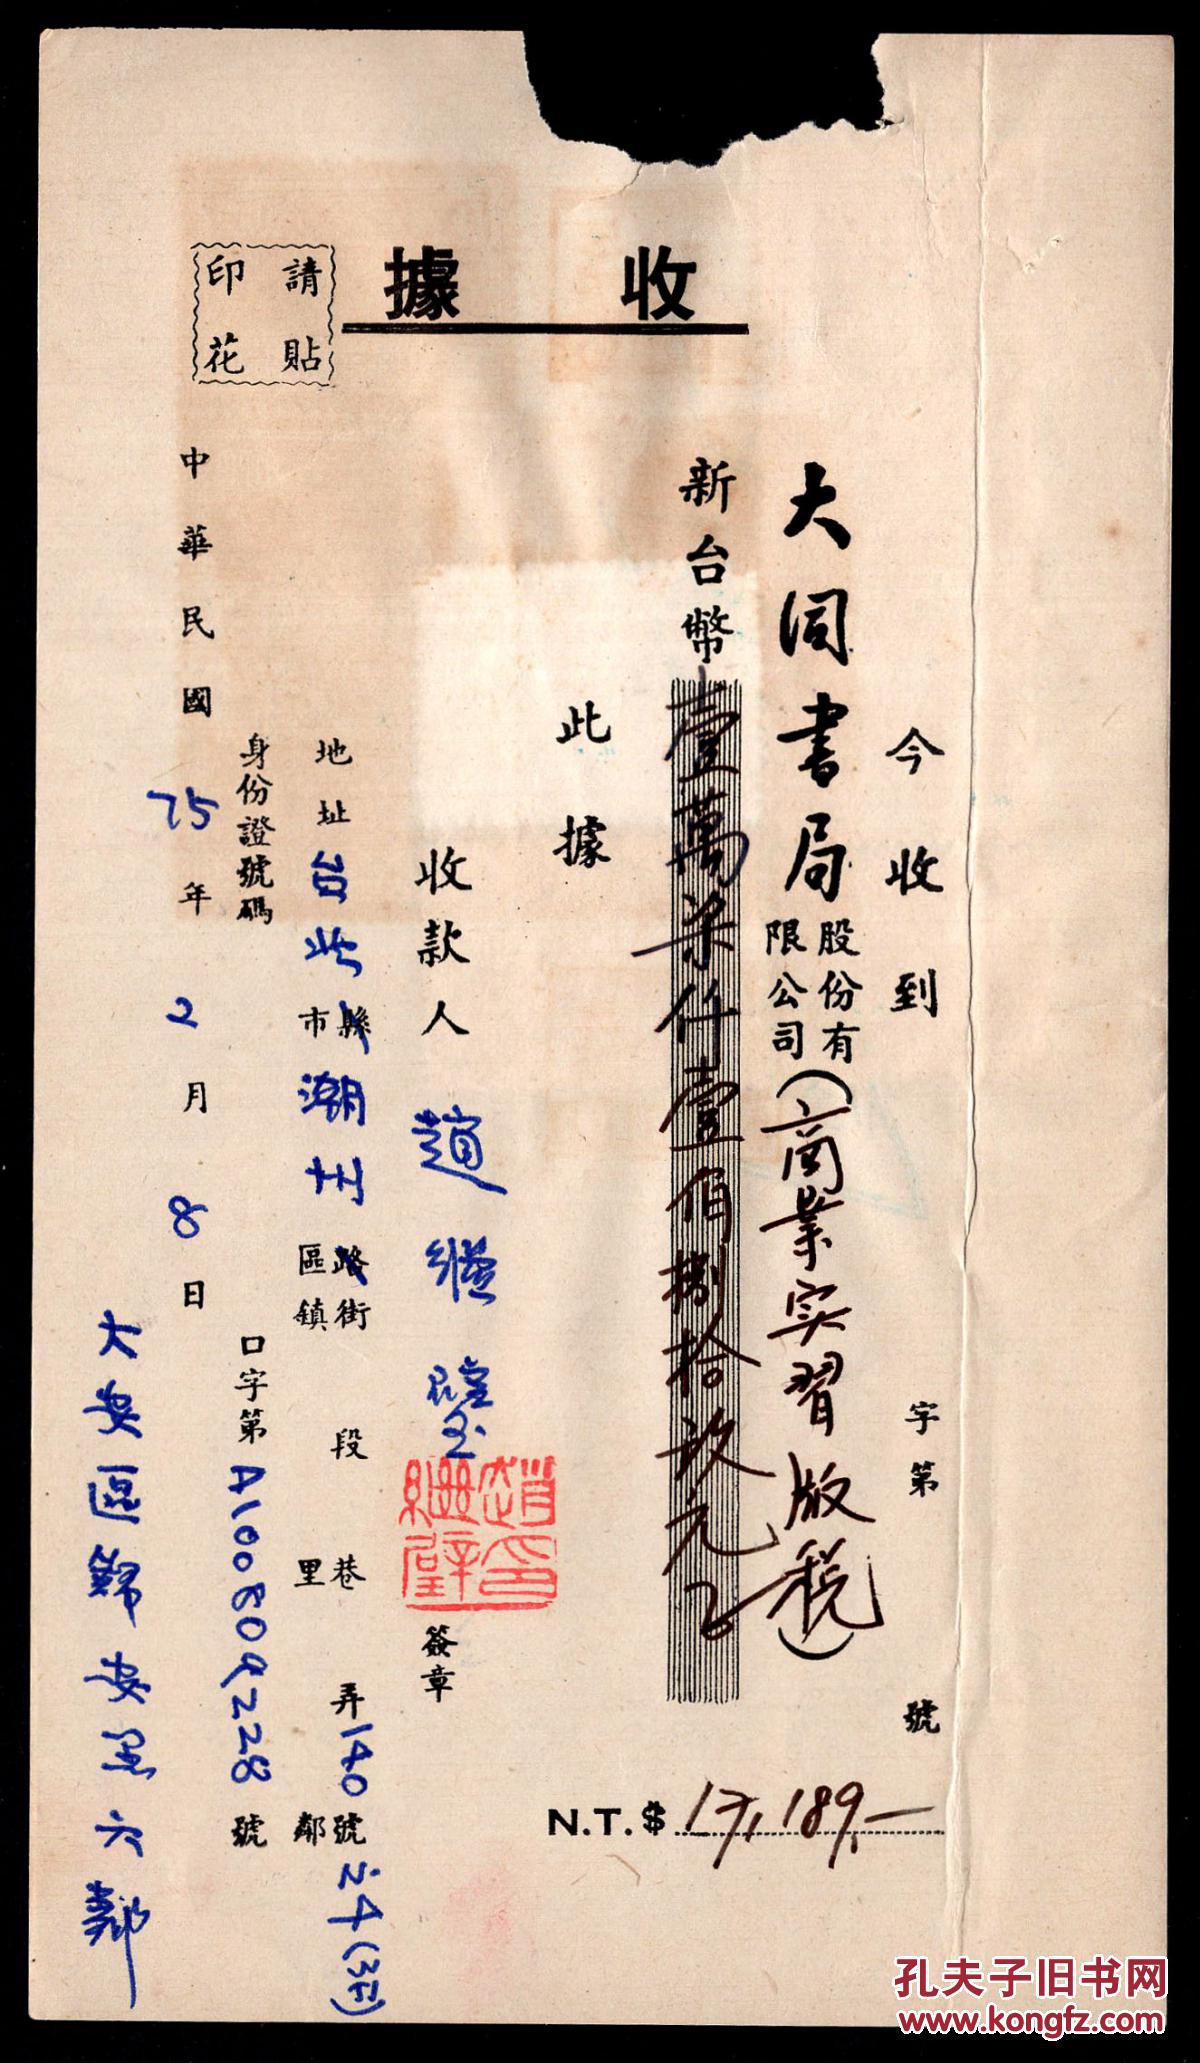 收據
請貼
印花
字第 號
今收到
大同書局股份有限公司(商業实習版税)
新台幣壹萬柒仟壹佰捌拾玖元正
N.T.$ 17,189.—
此據
收款人 趙繼璧 簽章
趙印繼璧
地址台北縣市潮州路街區鎮 段 巷里 弄140號鄰 24(3F)
身份證號碼 口字第A100809228號
中華民國75年2月8日
大安區錦安里六鄰
孔夫子旧书网
www.kongfz.com